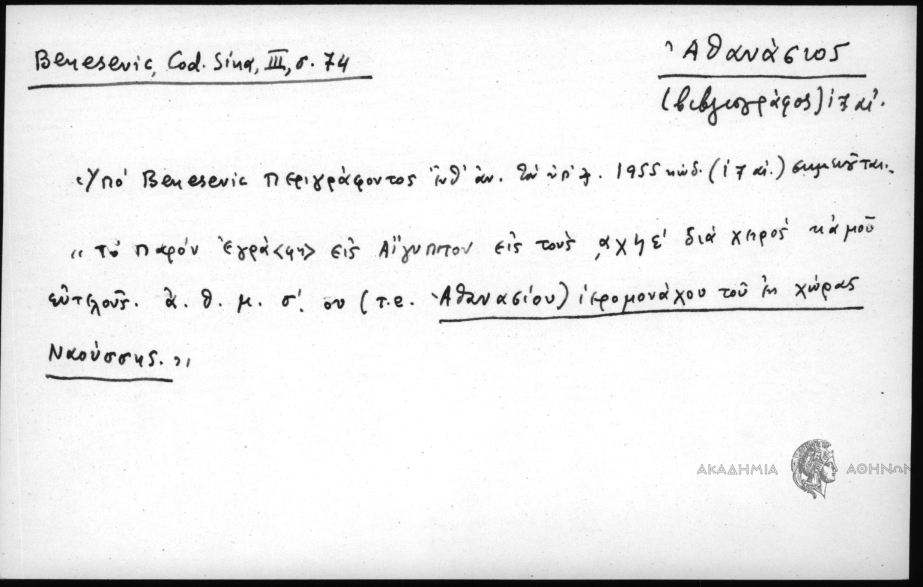 Benesevic, Cod. Sina, III, σ. 74
Ἀθανάσιος
(βιβλιογράφος) ιζ' αἰ.
Ὑπό Benesevic περιγράφοντος 1955 κώδ. (ιζ' αἰ.) σημειοῦται.
"Τό παρόν ἐγρά<φη> εἰς Αἴγυπτον εἰς τούς ͵αχηε' διά χειρός κἀμοῦ
εὐτελοῦς. ἀ. θ. μ. σ'. ου (τ.ε. Ἀθανασίου) ἱερομονάχου τοῦ ἐκ χώρας
Ναούσσης."
ΑΚΑΔΗΜΙΑ ΑΘΗΝΩΝ